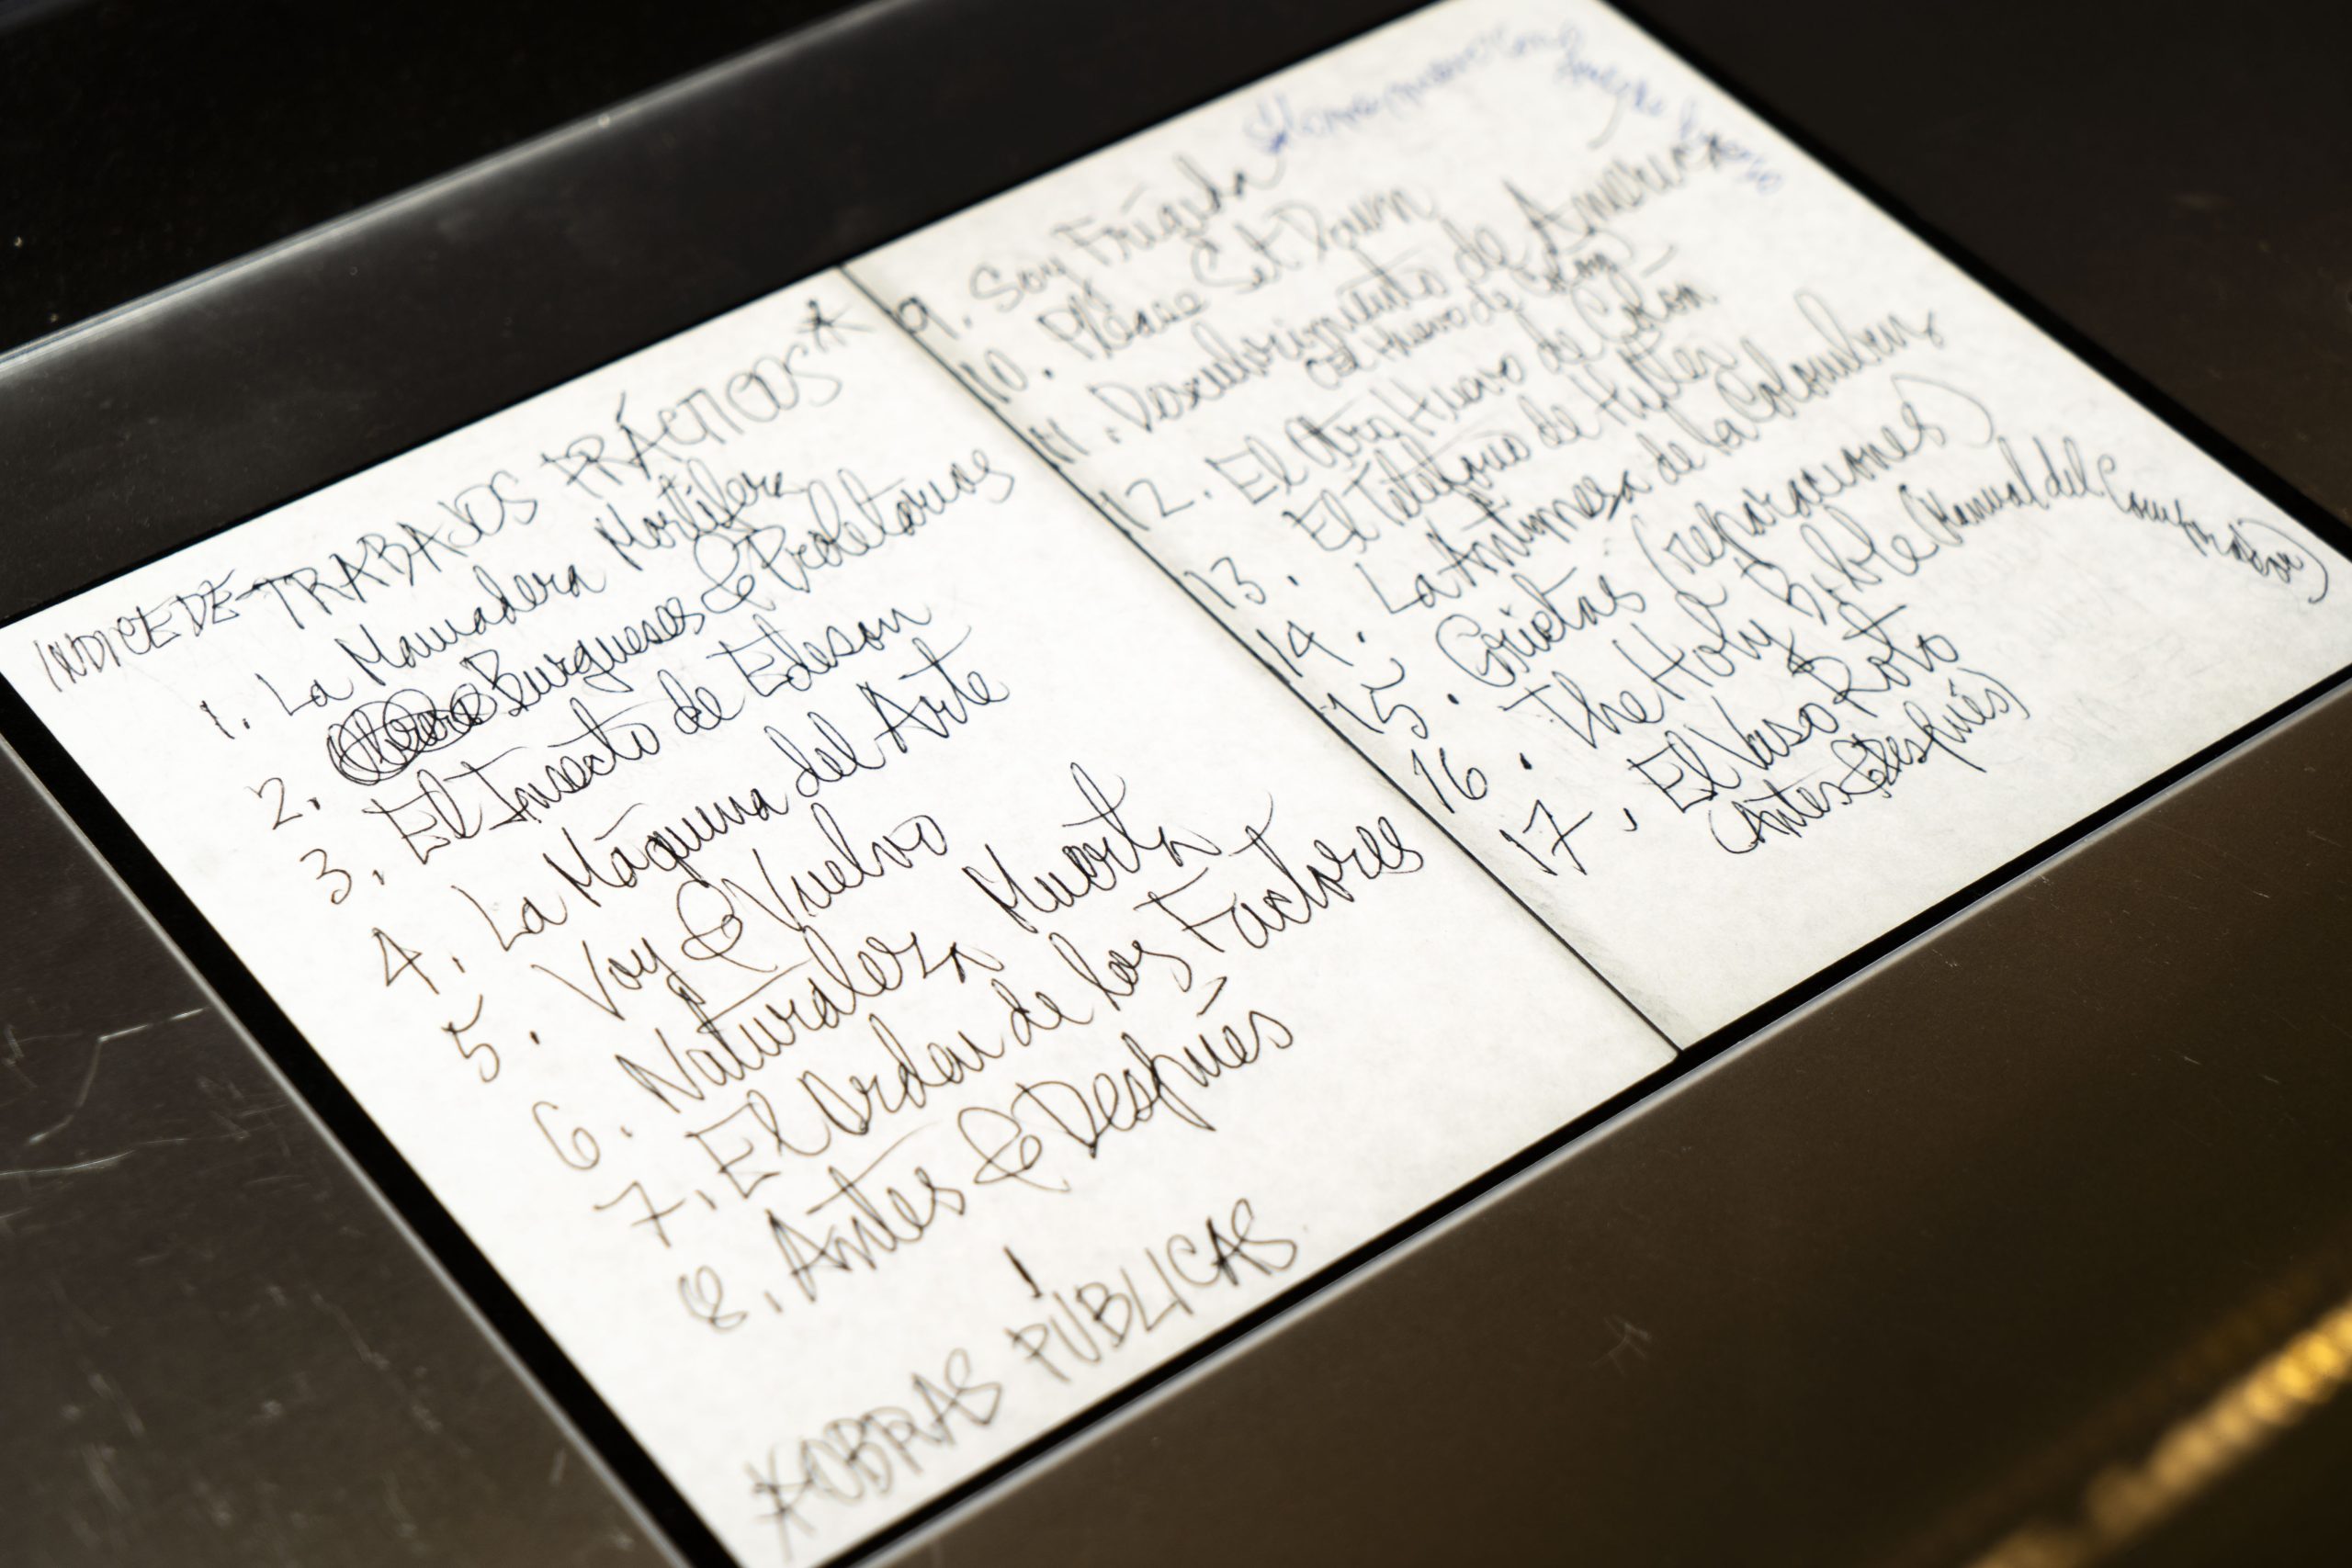 INDICE DE TRABAJOS PRÁCTICOS*
1. La Mamadera Mortífera
2. Burgueses & Proletarios
3. El Invento de Edison
4. La Máquina del Arte
5. Voy & Vuelvo
6. Naturaleza Muerta
7. El Orden de los Factores
8. Antes & Después
*OBRAS PÚBLICAS
9. Soy Frígida
10. Please Set Down
11. Descubrimiento de America*
El Huevo de Colón
12. El Otro Huevo de Colón
13. El Teléfono de Hitler
14. La Antimesa de la
15. Grietas (reparaciones)
16. The Holy Bible (Manual del Comprador)
17. El Vaso Roto
(Antes & Después)